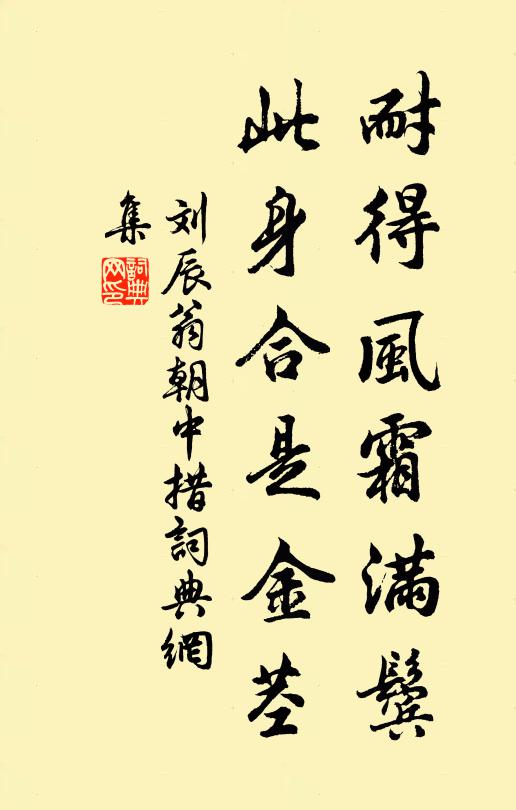 耐得風霜滿鬢
此身合是金莖
刘辰翁朝中措詞典網
集
詞典網印